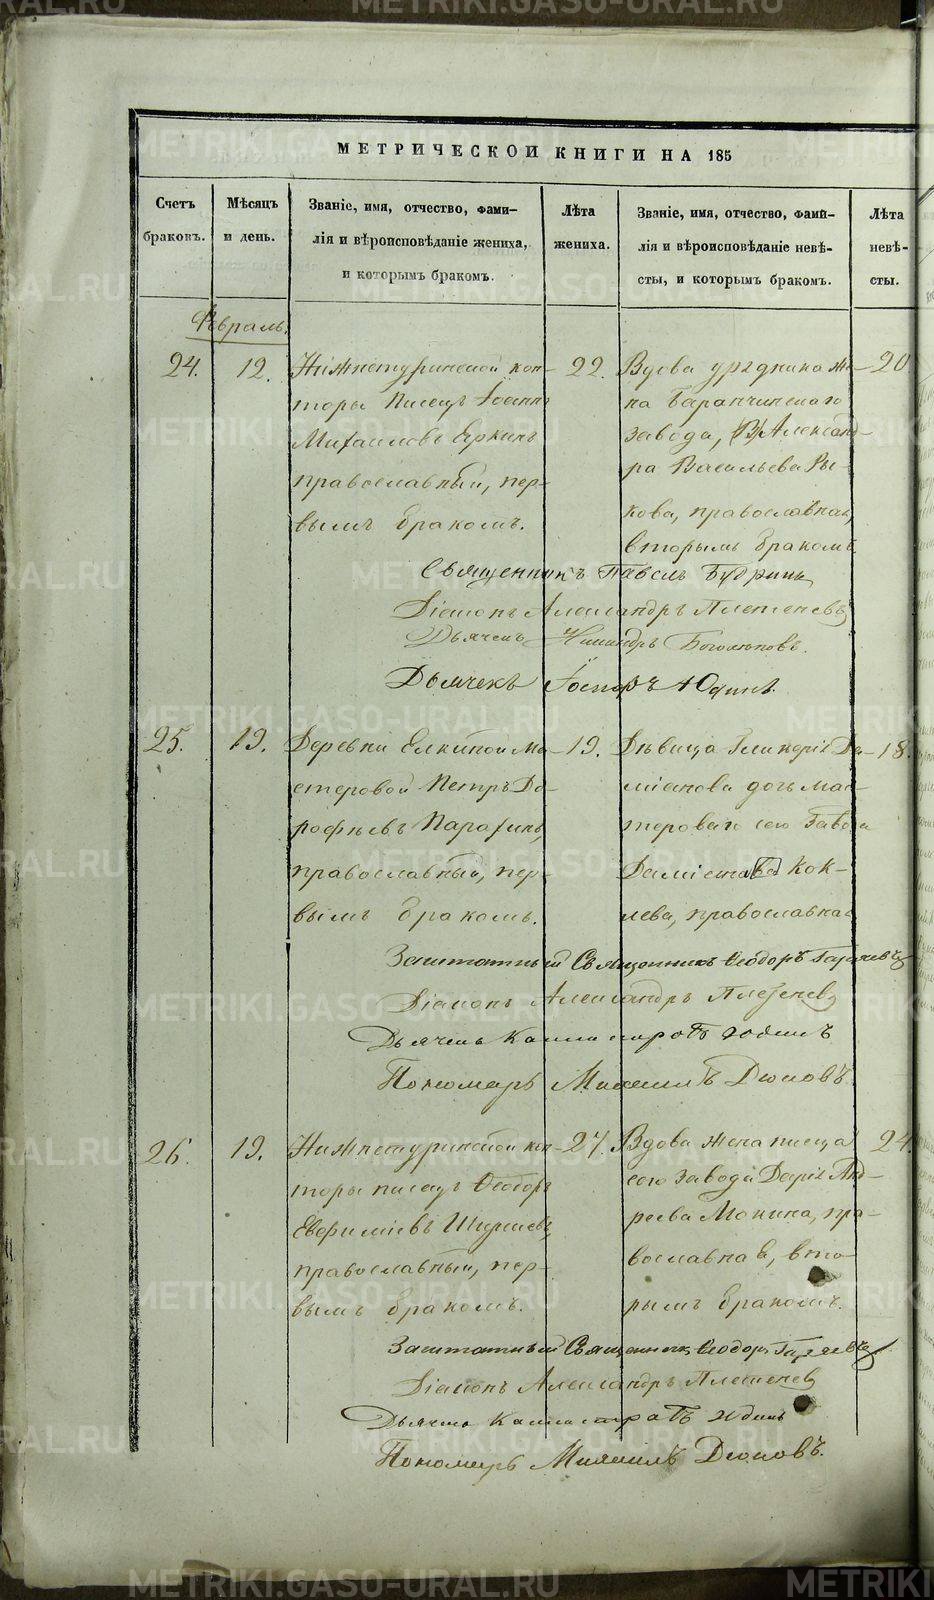 МЕТРИЧЕСКОЙ КНИГИ НА 185
Счетъ браковъ.
Мѣсяцъ и день.
Званіе, имя, отчество, фами-
лія и вѣроисповѣданіе жениха,
и которымъ бракомъ.
Лѣта жениха.
Званіе, имя, отчество, фами-
лія и вѣроисповѣданіе невѣ-
сты, и которымъ бракомъ.
Лѣта невѣ-
сты.
Февраль.
24.
12.
Нижнетуринской кон-
торы писецъ Іоаннъ
Михаиловъ Еркинъ
православный, пер-
вымъ бракомъ.
22.
Вдова урядника же-
на Баранчинскаго
завода, Александ-
ра Васильева Ры-
кова, православная,
вторымъ бракомъ
20
Священникъ Павелъ Будринъ
Діаконъ Александръ Плетеневъ
Дьячекъ Никандръ
Дьячекъ Юдинъ.
25.
19.
Деревни Елкиной ма-
стеровой Петръ До-
рофѣевъ
православный, пер-
вымъ бракомъ.
19.
Дѣвица Гликерія Да-
міанова дочь мас-
Даміана Кок-
лева, православная
18.
Заштатный Священникъ Ѳеодоръ
Діаконъ Александръ Плетеневъ
Дьячекъ Каллистратъ Юдинъ
Пономарь Михаилъ
26.
19.
Нижнетуринской кон-
торы писецъ Ѳеодоръ
православный, пер-
вымъ бракомъ.
27.
Вдова жена писца
сего завода Дарія Анд-
реева Мокина, пра-
вославная, вто-
рымъ бракомъ.
24.
Заштатный Священникъ Ѳеодоръ
Діаконъ Александръ Плетеневъ
Дьячекъ Каллистратъ Юдинъ
Пономарь Михаилъ
METRIKI.GASO-URAL.RU